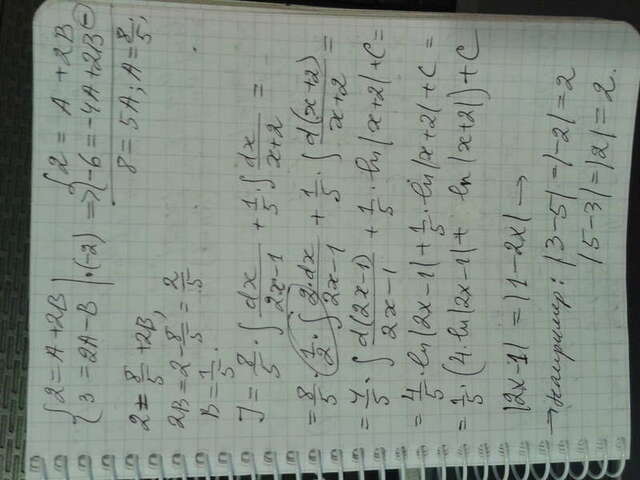 {2=A+2B |·(-2) => {2=A+2B ⊖
{3=2A-B {-6=-4A+2B
8=5A; A=8/5;
2=8/5+2B,
2B=2-8/5=2/5
B=1/5.
J=8/5·∫dx/(2x-1)+1/5·∫dx/(x+2)=
=8/5·(1/2·∫2·dx/(2x-1)+1/5·∫d(x+2)/(x+2)=
=4/5·∫d(2x-1)/(2x-1)+1/5·ln|x+2|+C=
=4/5·ln|2x-1|+1/5·ln|x+2|+C=
=1/5·(4·ln|2x-1|+ln|x+2|)+C
|2x-1|=|1-2x| →
→ Например: |3-5|=|-2|=2
|5-3|=|2|=2.